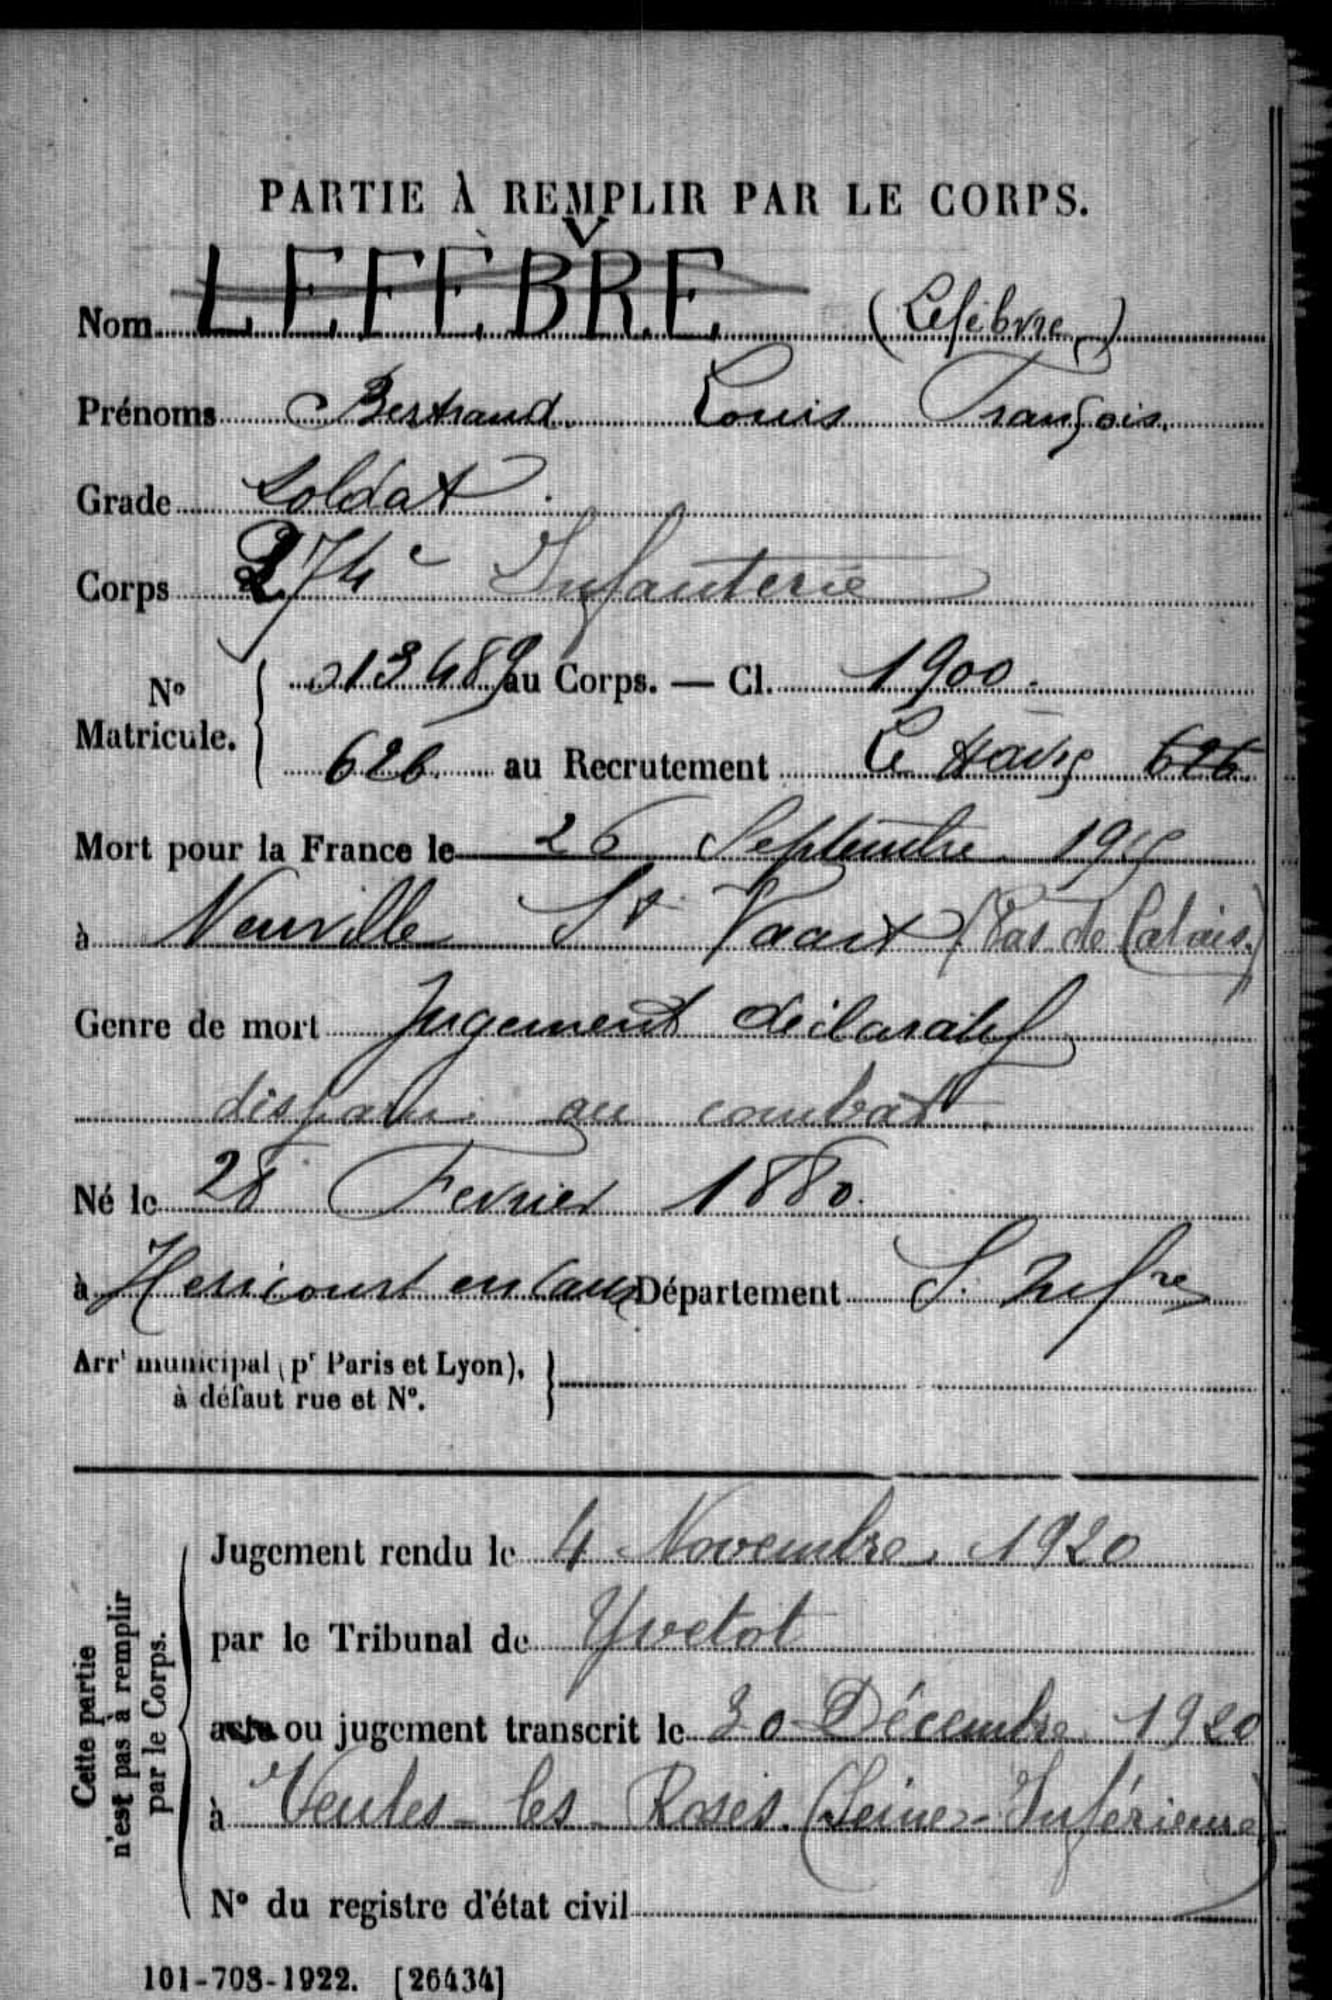 PARTIE À REMPLIR PAR LE CORPS.
V
Nom LEFÈBRE (Lefèbvre)
Prénoms Bertrand Louis François.
Grade Soldat
Corps 274e Infanterie
No Matricule. { 013489 au Corps. — Cl. 1900.
626 au Recrutement Le Havre 626
Mort pour la France le 26 Septembre 1915
à Neuville St Vaast (Pas de Calais)
Genre de mort Jugement déclaratif
disparu au combat
Né le 28 Fevrier 1880.
à Hericourt en Caux Département S. Infre
Arrt municipal (pr Paris et Lyon), à défaut rue et No.
Cette partie n'est pas à remplir par le Corps.
Jugement rendu le 4 Novembre 1920
par le Tribunal de Yvetot
acte ou jugement transcrit le 30 Décembre 1920
à Veules-les-Roses. (Seine-Inférieure)
No du registre d'état civil
101-708-1922. [26434]